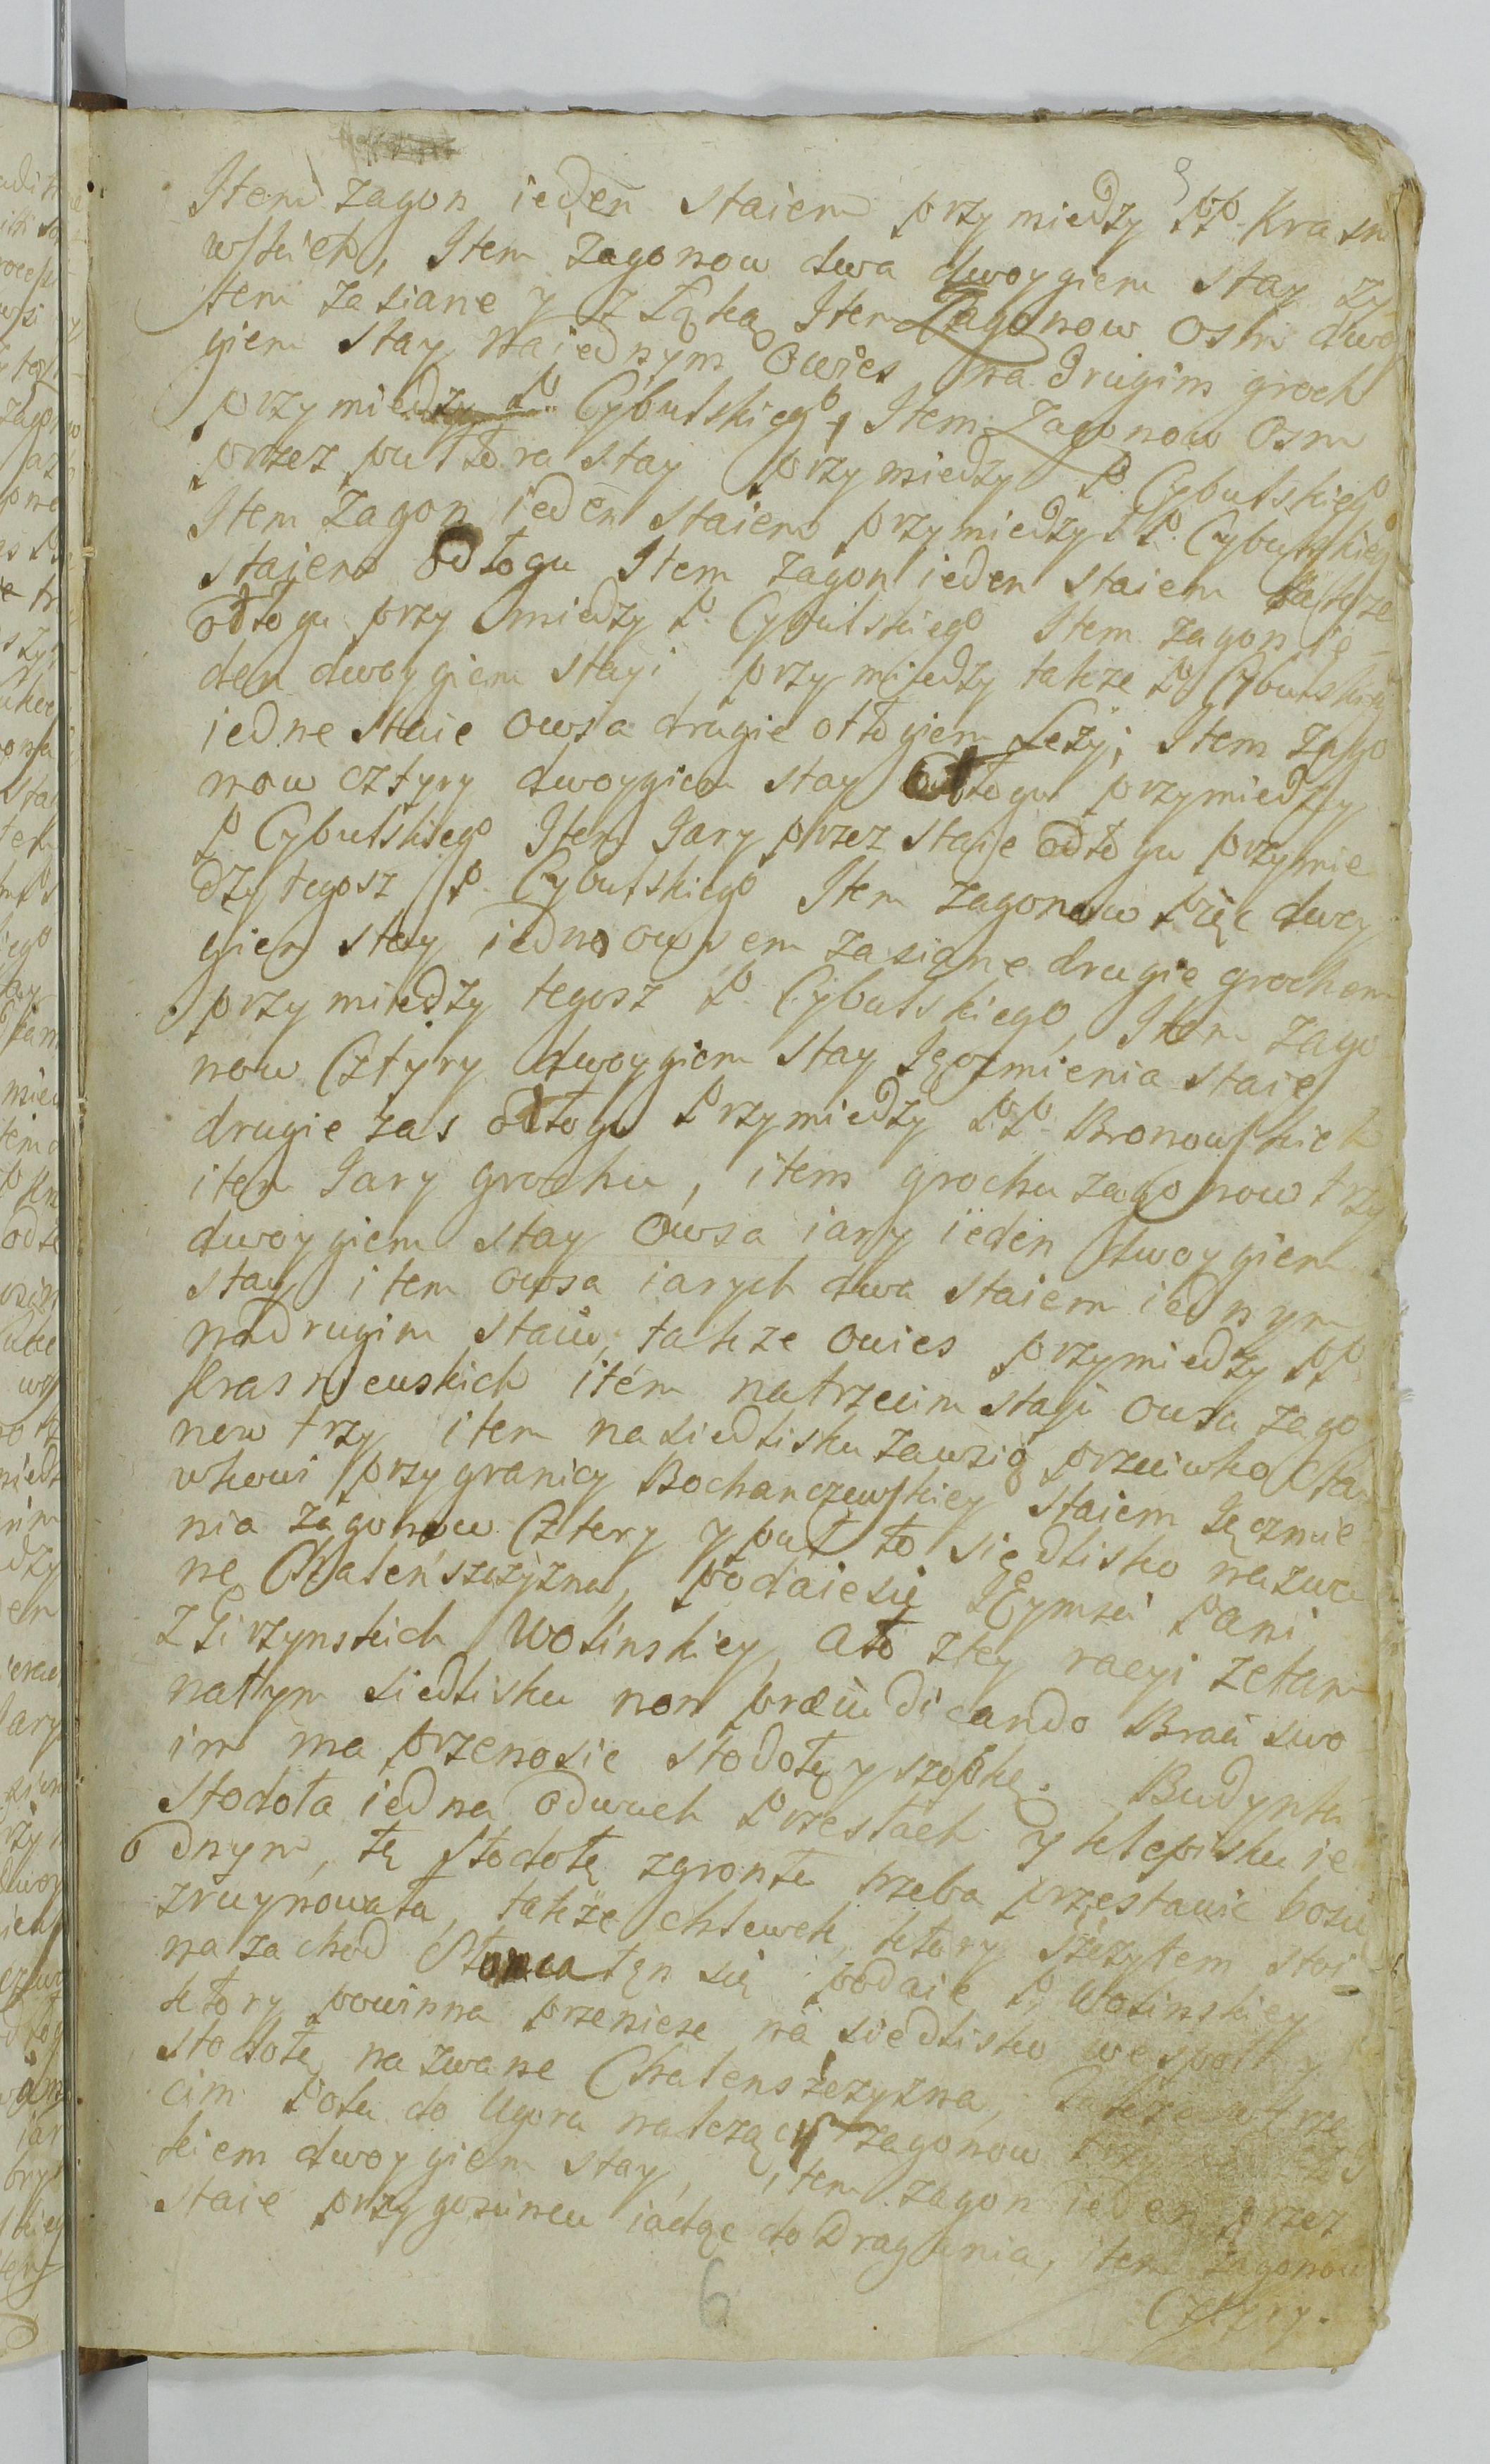 Item Zagon ieden staiem przy miedzy PP. Krasn
wskich, Item Zagonow dwa dwoygiem stay zy
tem zasiane y z Łąką Item Zagonow Osm dwo
giem stay na iednym Owies na drugim groch
przy miedzy P. Cybulskiego, Item Zagonow Osm
przez pułtora stay przy miedzy P. Cybulskiego
Item Zagon ieden staiem przy miedzy P. Cybulskieg
staiem odłogu Item zagon ieden staiem także
odłogu przy miedzy P. Cybulskiego Item zagon ie-
den dwoygiem stayi przy miedzy także P. Cybulskieg
iedne staie owsa drugie odłogiem leży; Item Zago
now cztyry dwoygiem stay odłogu przymiedzy
P Cybulskiego Item Jary przez staie odłogu przymie
dzy tegosz P. Cybulskiego Item zagonow pięc dwoy
giem stay iedno owsem zasiane drugie grochem
przy miedzy tegosz P. Cybulskiego, Item Zago
now Cztyry dwoygiem stay Jęczmienia staie
drugie zas odłogu Przymiedzy P.P. Bronowskich
item Jary grochu, item grochu zagonow trzy
dwoygiem stay Owsa iary ieden dwoygiem
stay item owsa iarych dwa staiem iednym
nadrugim staiu, także owies przymiedzy PP.
Krasniewskich item natrzecim stayi owsa zago
now trzy item nasiedlisku zawsią przeciwko Sta
wkowi przy granicy Bochanczewskiey staiem Jęczmie
nia zagonow Cztery y puł to siedlisko nazwa
ne Chaleńszczyzna, podaiesię JEymsci Pani
z Girzynskich Wolinskiey, ato ztey racyi zetam
natym siedlisku non præiudicando Braci swo
im ma przenosic stodołę y szopkę. Budynku
stodoła iedna odwuch Przesłach y klepisku ie
dnym, tę stodołę zgrontu trzeba przestawic bosie
zruynowała, także chlewek, ktory szczytem stoi
nazachod Słonca ten się podaie P. Wolinskiey
ktory powinna przeniesc na siedlisko wespoł y
stodołę nazwane Chalenszczyzna, Także w trze
cim Polu do Ugoru nalezących zagonow trzy
kiem dwoygiem stay, item zagon ieden przez
staie przy goscincu iadąc do Dragunia, item zagonow
Cztyry.
6